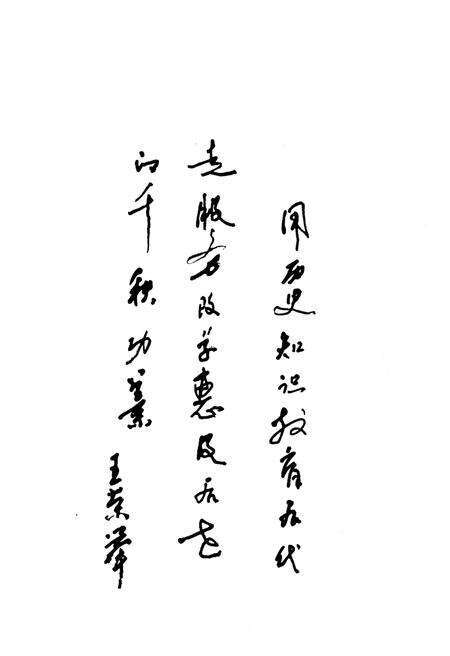 用历史知识教育后代
是服务改革惠及后世
的千秋功业
王荣